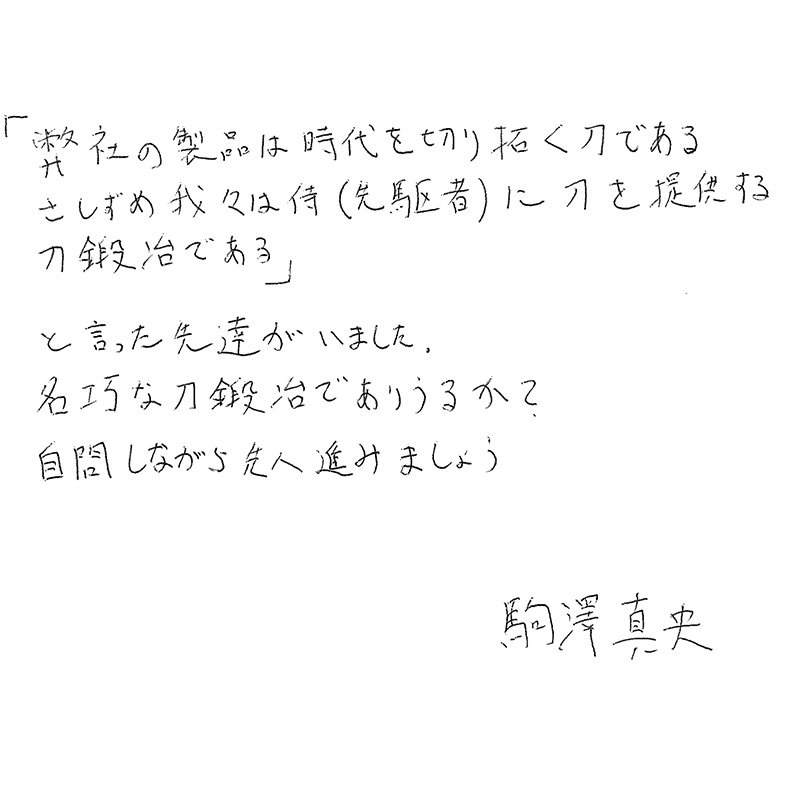 「弊社の製品は時代を切り拓く刀である
さしずめ我々は侍(先駆者)に刀を提供する
刀鍛冶である」
と言った先達がいました.
名巧な刀鍛冶でありうるか?
自問しながら先へ進みましょう
駒澤真央